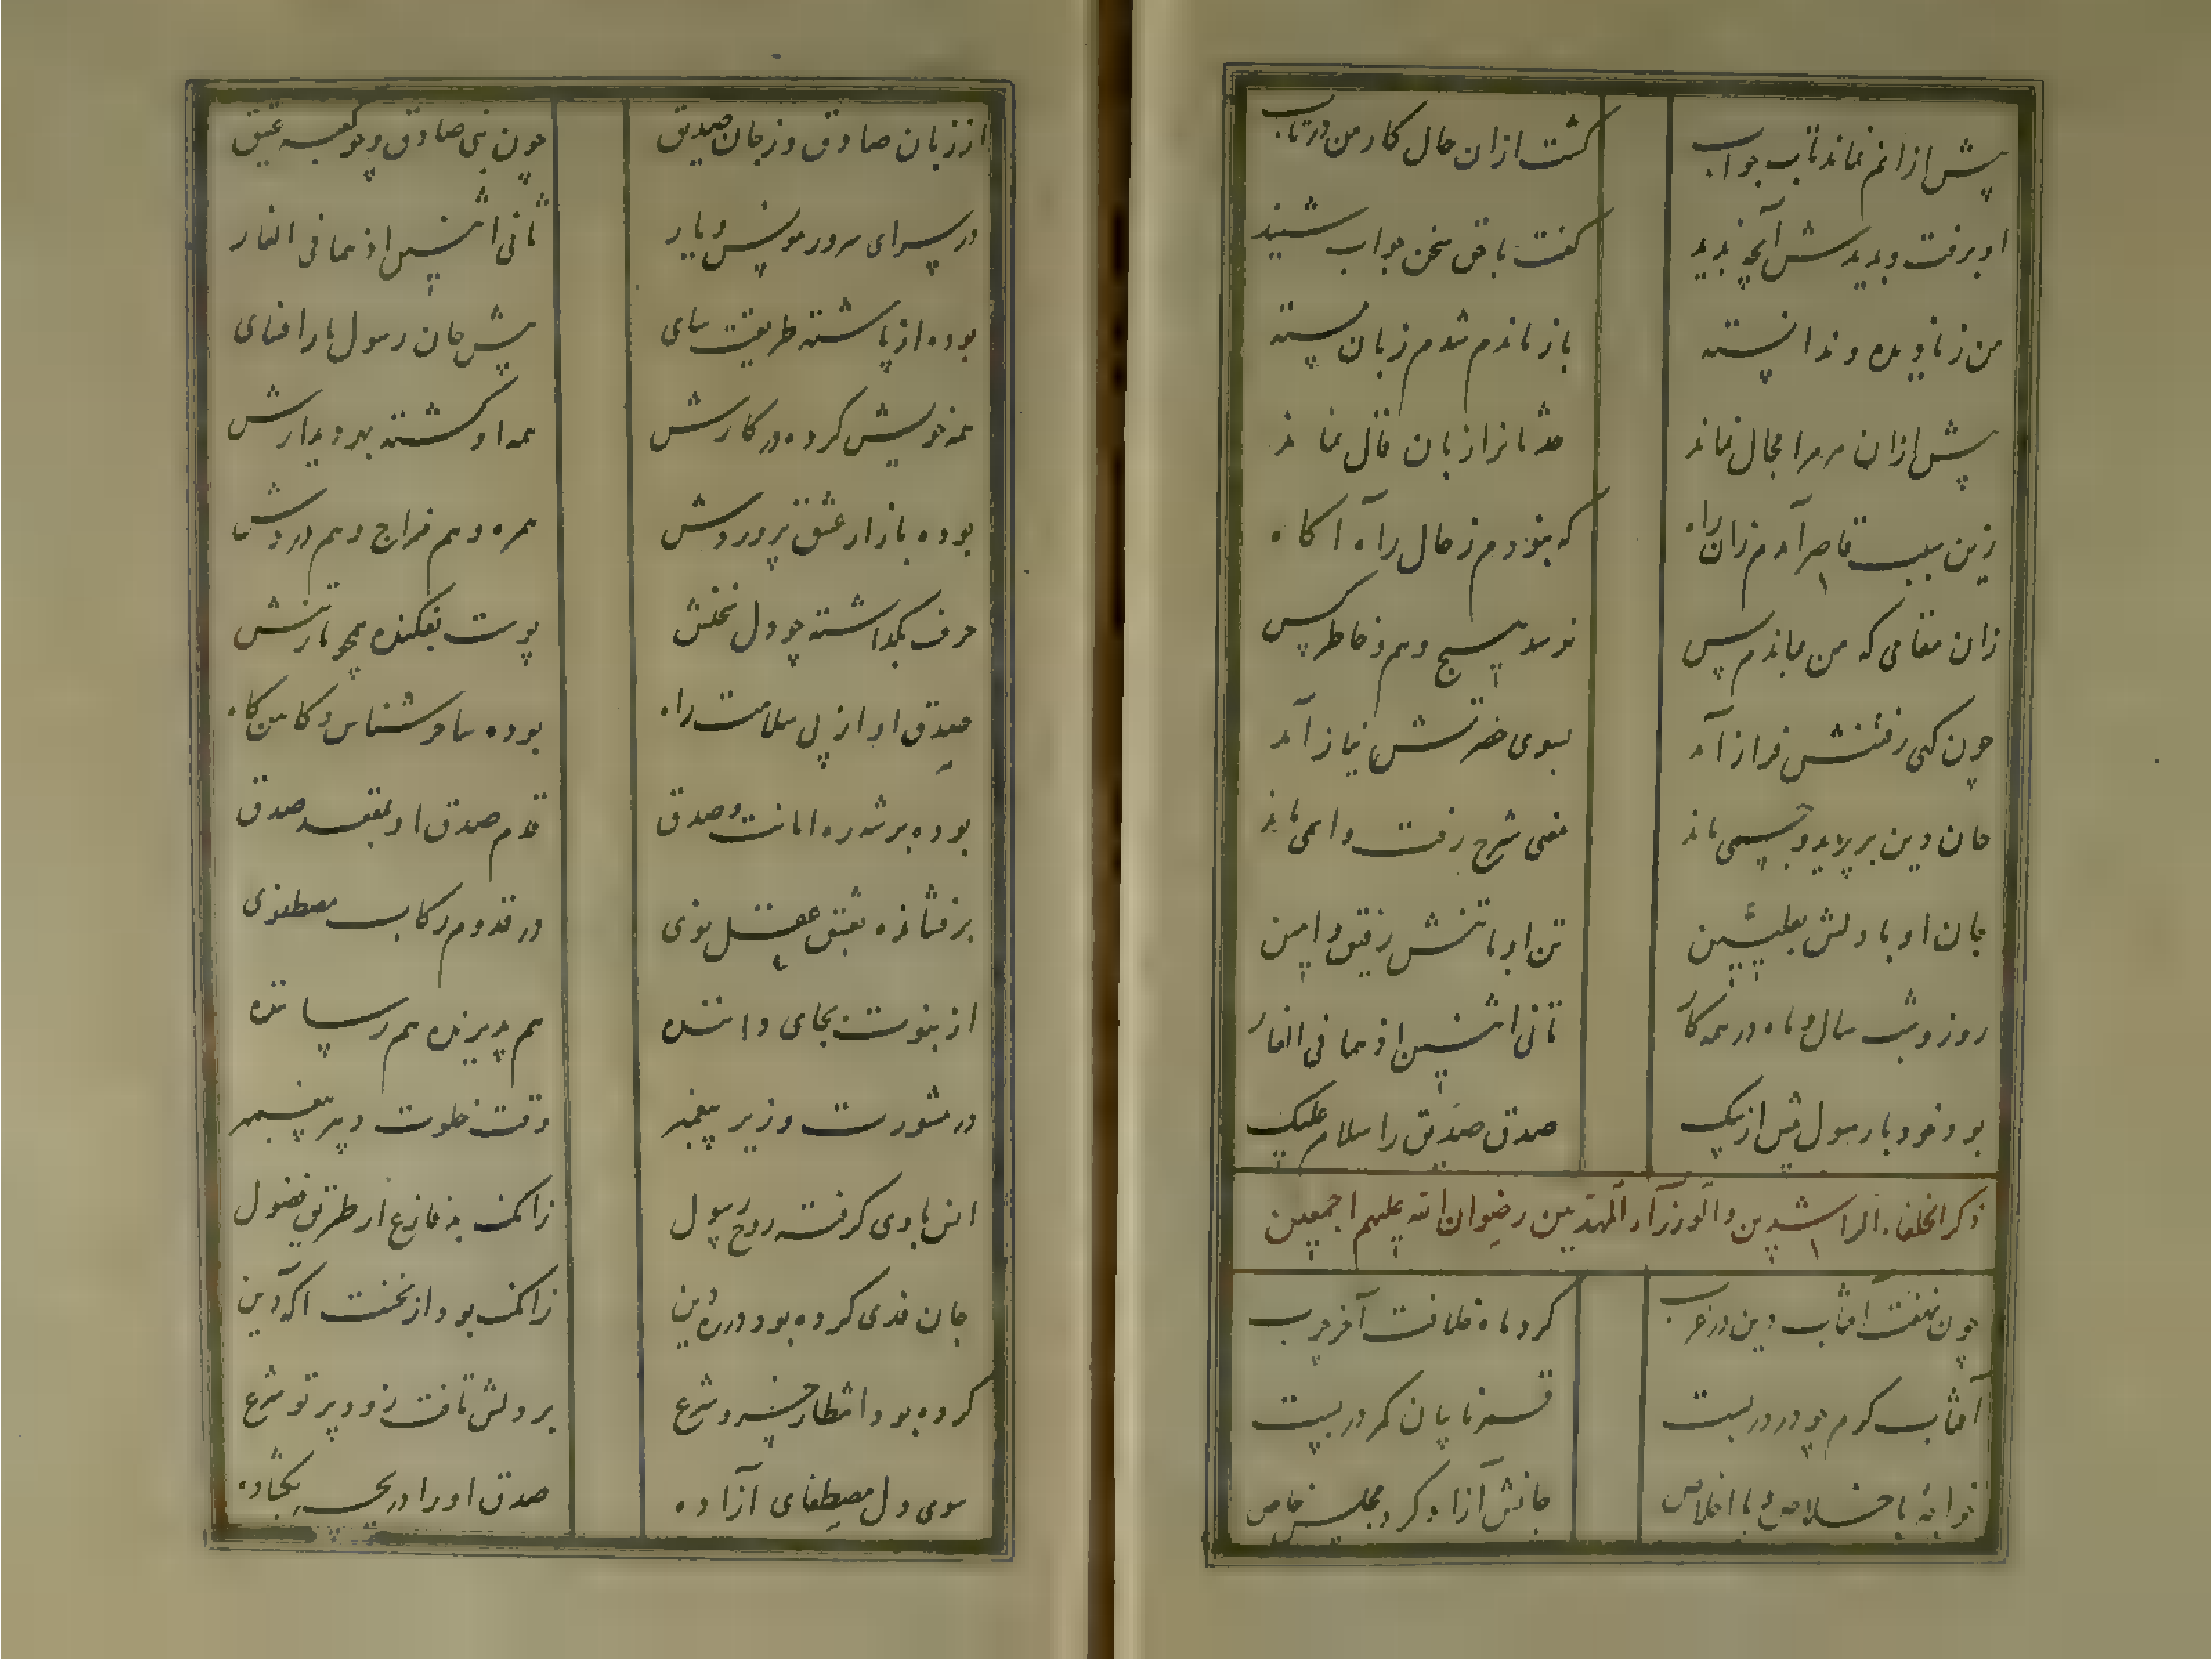 پیش ازانم نماند تاب جواب
کشت ازان حال کار من درتاب
او برفت و بدید شش آنچه ندید
کفت با حق سخن جواب شنید
من ز نادیده و ندانسته
باز ماندم شدم زبان بسته
پیش ازان مر مرا مجال نماند
زبان قال نماند
زین سبب قاصر آمدم زان راه
که نبودم ز حال راه آکاه
زان مقامی که من بماندم پس
نرسد هیچ وهم و خاطر کس
چون کهی رفتنش فراز آمد
بسوی حضرتش نیاز آمد
جان دین بر پرید و جسمی ماند
معنی شرح رفت و اسمی ماند
جان او با دلش بعلیین
تن او با تنش رفیق و امین
روز و شب سال و ماه در همه کار
ثانی اثنین اذ هما فی الغار
بود خود با رسول پیش از پیک
صدق صدیق را سلام علیک
ذکر الخلفاء الراشدین والوزرآء المهتدین رضوان الله علیهم اجمعین
چون نهفت آفتاب دین در غرب
کرد ماه خلافت آخر چرب
آفتاب کرم چو در دربست
قسر تا پان کمر دربست
خواجه با خلاصه و با اخلاص
جانش آزاد کرد مجلس خاص
از زبان صادق و ز جان صدیق
چون نبی صادق و چو کعبه عتیق
در سرای سرور مونس و یار
ثانی اثنین اذ هما فی الغار
بوده از پاشنه طریقت سای
پیش جان رسول بار افسای
همه خویش کرده در کارش
همه او کشته بهر دیدارش
بوده بازار عشق پروردش
همره و هم مزاج و هم دردش
حرف بکداشته چو دل سخنش
پوست بفکنده همچو مار تنش
صدق او از پی سلامت راه
بوده ساحر شناس و کاهن کاه
بوده برشه ره امانت و صدق
قدم صدق او بمقعد صدق
برفشانده بعشق عقل نوی
در قدوم رکاب مصطفوی
از نبوت بجای داننده
هم پذیرنده هم رساننده
در مشورت وزیر پیغمبر
وقت خلوت و پیر پیغمبر
انس با وی کرفت روح رسول
زانک بد فارغ از طریق فضول
جان فدی کرده بود در ره دین
زانک بود از نخست اکه دین
کرده بود انتظار خسرو شرع
بر دلش تافت زود پرتو شرع
سوی دل مصطفای آزاده
صدق او را دریچه بکشاده